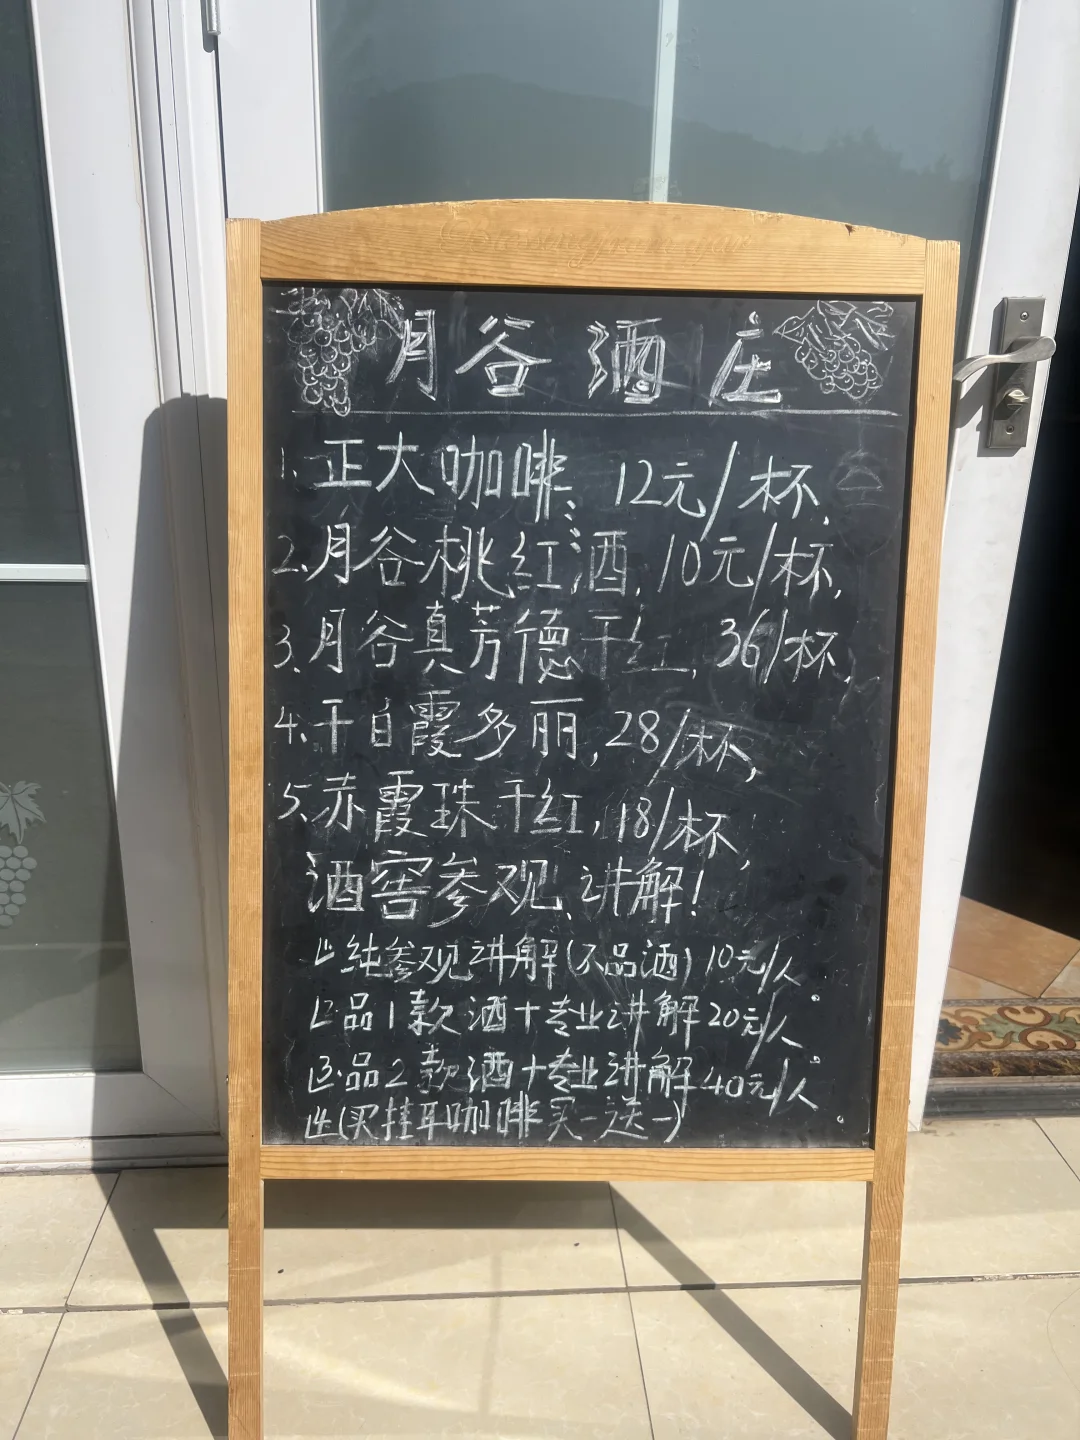 月谷酒庄
1. 正大咖啡、12元/杯,
2. 月谷桃红酒, 10元/杯,
3. 月谷真芳德干红, 36/杯,
4. 干白霞多丽, 28/杯,
5. 赤霞珠干红, 18/杯,
酒窖参观、讲解!
1. 纯参观讲解(不品酒) 10元/人。
2. 品1款酒+专业讲解 20元/人。
3. 品2款酒+专业讲解 40元/人。
4. (买挂耳咖啡买一送一)